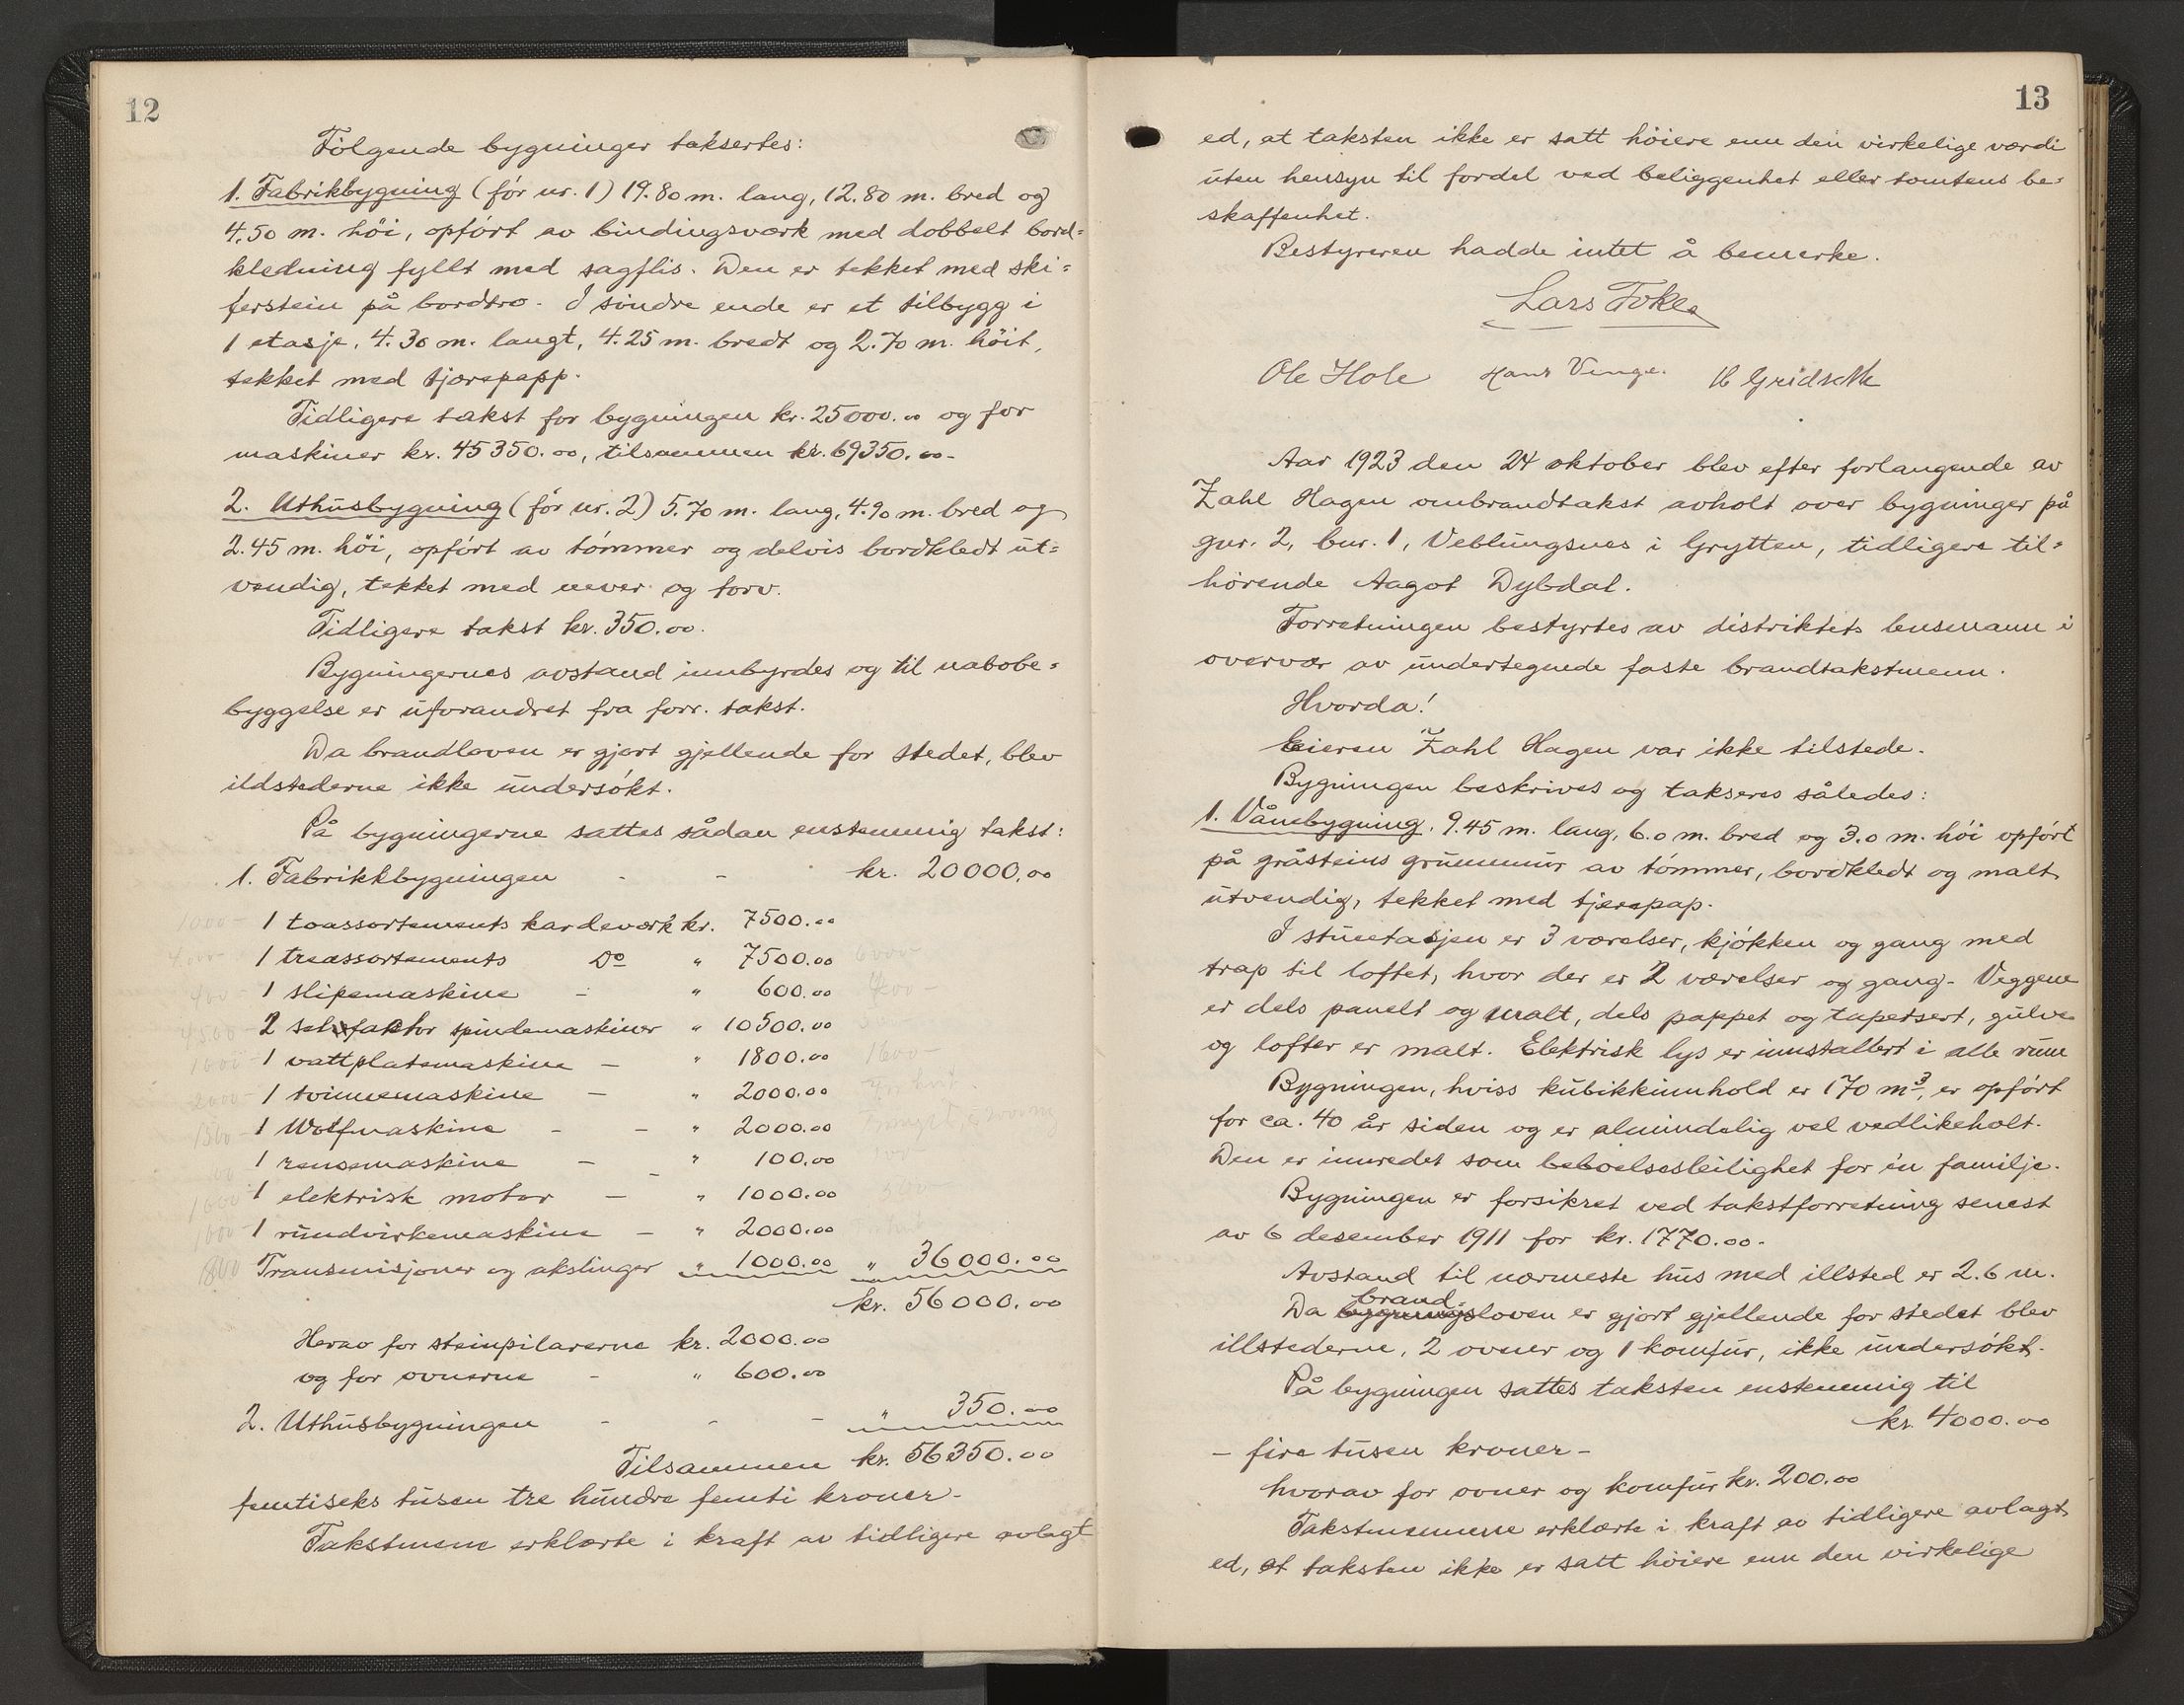 12
Følgende bygninger taksertes:
1. Fabrikbygning (før nr. 1) 19.80 m. lang, 12.80 m. bred og
4.50 m. høi, opført av bindingsværk med dobbelt bord=
kledning fyllt med sagflis. Den er tekket med ski=
ferstein på bordtro. I søndre ende er et tilbygg i
1 etasje, 4.30 m. langt, 4.25 m. bredt og 2.70 m. høit,
tekket med tjærepapp.
Tidligere takst for bygningen kr. 25000.00 og for
maskiner kr. 45350.00, tilsammen kr. 69350.00-
2. Uthusbygning (før nr. 2) 5.70 m. lang, 4.90 m. bred og
2.45 m. høi, opført av tømmer og delvis bordkledt ut=
vendig, tekket med never og torv.
Tidligere takst kr. 350.00.
Bygningernes avstand innbyrdes og til nabobe=
byggelse er uforandret fra forr. takst.
Da brandloven er gjort gjellende for stedet, blev
ildstederne ikke undersøkt.
På bygningerne sattes sådan enstemmig takst:
1. Fabrikkbygningen - - kr. 20000.00
1000- 1 toassortements kardeværk kr. 7500.00
4000- 1 treassortements Do " 7500.00 6000
400- 1 slipemaskine - " 600.00 400-
4500- 2 selvfaktor spindemaskiner " 10500.00
1000- 1 vattplatemaskine - " 1800.00 1600-
2000- 1 tvinnemaskine - " 2000.00
1500- 1 Wolfmaskine - - " 2000.00
100 1 rensemaskine - - " 100.00 100
1000 1 elektrisk motor - " 1000.00
1000- 1 rundvirkemaskine - " 2000.00
1800 Transmisjoner og akslinger " 1000.00 " 36000.00
kr. 56000.00
Herav for steinpilarerne kr. 2000.00
og for ovnerne - " 600.00
2. Uthusbygningen - - - " 350.00
Tilsammen kr. 56350.00
femtiseks tusen tre hundre femti kroner-
Takstmenn erklærte i kraft av tidligere avlagt
13
ed, at taksten ikke er satt høiere enn den virkelige værdi
uten hensyn til fordel ved beliggenhet eller tomtens be=
skaffenhet.
Bestyreren hadde intet å bemerke.
Lars Tokle
Ole Hole Hans Venge. H Gridseth
Aar 1923 den 24 oktober blev efter forlangende av
Zahl Hagen ombrandtakst avholt over bygninger på
gnr. 2, bnr. 1, Veblungsnes i Grytten, tidligere til=
hørende Aagot Dybdal.
Forretningen bestyrtes av distriktets lensmann i
overvær av undertegnede faste brandtakstmenn.
Hvorda!
Eieren Zahl Hagen var ikke tilstede.
Bygningen beskrives og takseres således:
1. Vånebygning, 9.45 m. lang, 6.0 m. bred og 3.0 m. høi opført
på gråsteins grunnmur av tømmer, bordkledt og malt
utvendig, tekket med tjærepap.
I stuetasjen er 3 værelser, kjøkken og gang med
trap til loftet, hvor der er 2 værelser og gang. Veggene
er dels panelt og malt, dels pappet og tapetsert, gulve
og lofter er malt. Elektrisk lys er innstallert i alle rum
Bygningen, hviss kubikkinnhold er 170 m³, er opført
for ca. 40 år siden og er almindelig vel vedlikeholt.
Den er innredet som beboelsesleilighet for én familje.
Bygningen er forsikret ved takstforretning senest
av 6 desember 1911 for kr. 1770.00.
Avstand til nærmeste hus med illsted er 2.6 m.
brand-
Da bygningsloven er gjort gjellende for stedet blev
illstederne, 2 ovner og 1 komfur, ikke undersøkt.
På bygningen sattes taksten enstemmig til
kr. 4000.00
- fire tusen kroner-
hvorav for ovner og komfur kr. 200.00
Takstmennene erklærte i kraft av tidligere avlagt
ed, at taksten ikke er satt høiere enn den virkelige